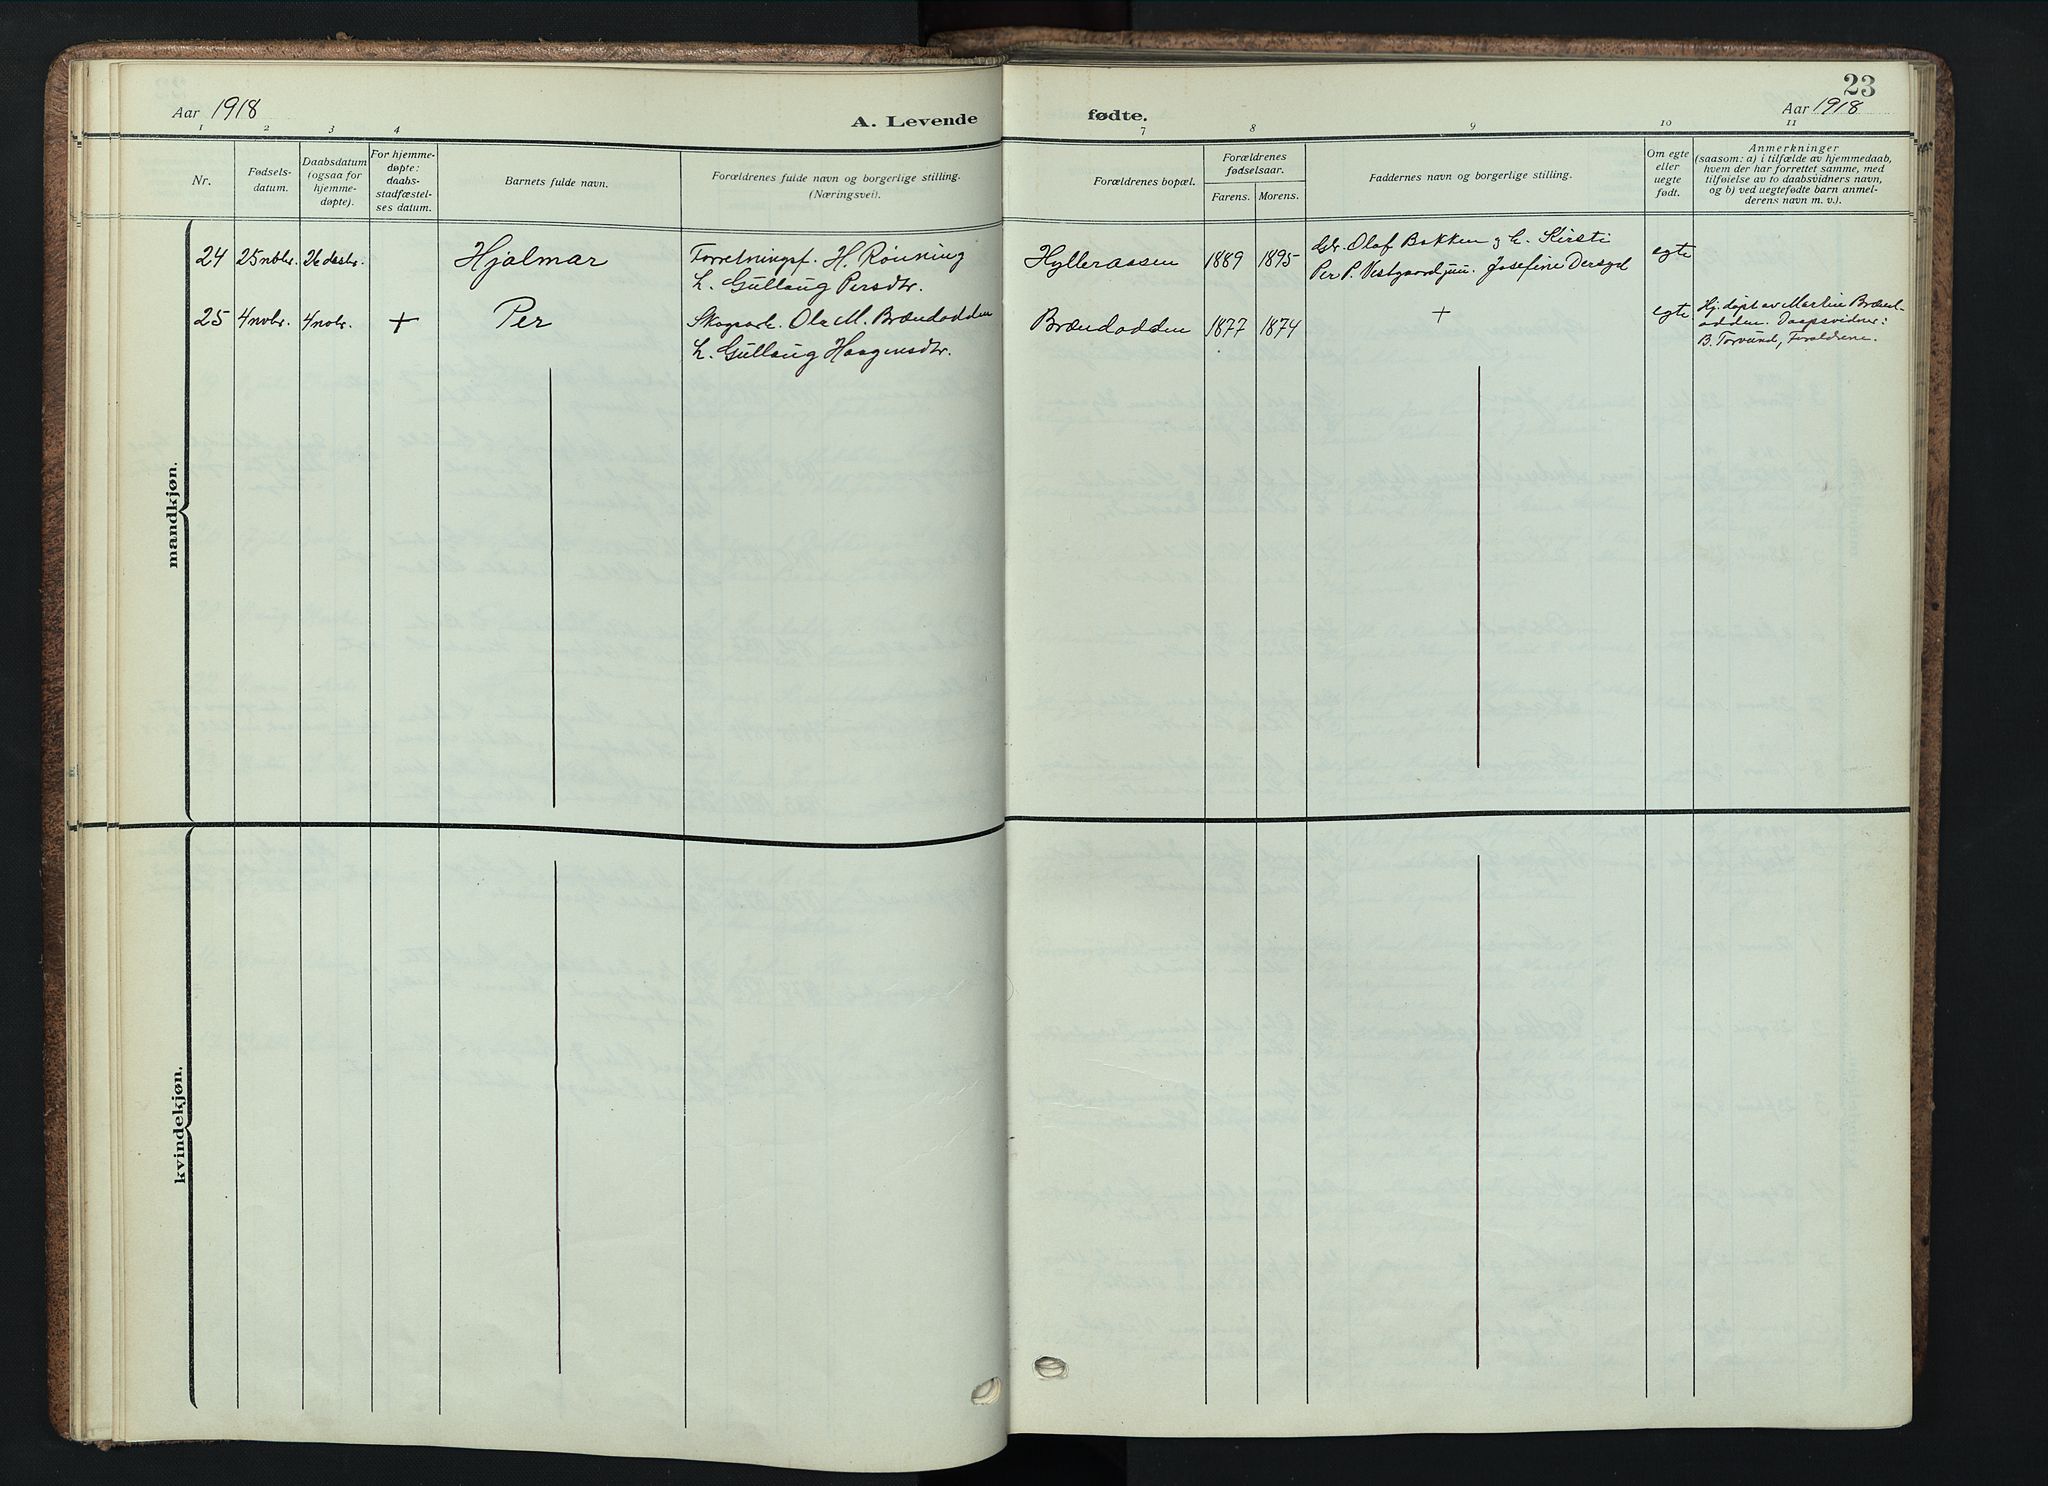 23
Aar 1918
A. Levende
fødte.
Aar 1918
1 2 3 4 7 8 9 10 11
Nr.
Fødsels-
datum.
Daabsdatum
(ogsaa for
hjemme-
døpte).
For hjemme-
døpte:
daabs-
stadfæstel-
ses datum.
Barnets fulde navn.
Forældrenes fulde navn og borgerlige stilling.
(Næringsvei).
Forældrenes bopæl.
Forældrenes
fødselsaar.
Farens. Morens.
Faddernes navn og borgerlige stilling.
Om egte
eller
uegte
født.
Anmerkninger
(saasom: a) i tilfælde av hjemmedaab,
hvem der har forrettet samme, med
tilføielse av to daabsvidners navn,
og b) ved uegtefødte barn anmel-
derens navn m. v.).
mandkjøn.
24 25 novbr. 26 desbr. Hjalmar Forretningsf. H. Rønning Hylleraasen 1889 1895 Gbr. Olaf Bakken og h. Kirsti egte
h. Gullaug Persdtr. Per P. Vestgaard jun. Josefine
25 4 novbr. 4 novbr. + Per Skogsarb. Ola M. Brændodden Brændodden 1877 1874 + egte Hj. døpt av Martin Brænd-
h. Gullaug Haagensdtr. odden. Daapsvidner:
B. Torvund, Forældrene.
kvindekjøn.